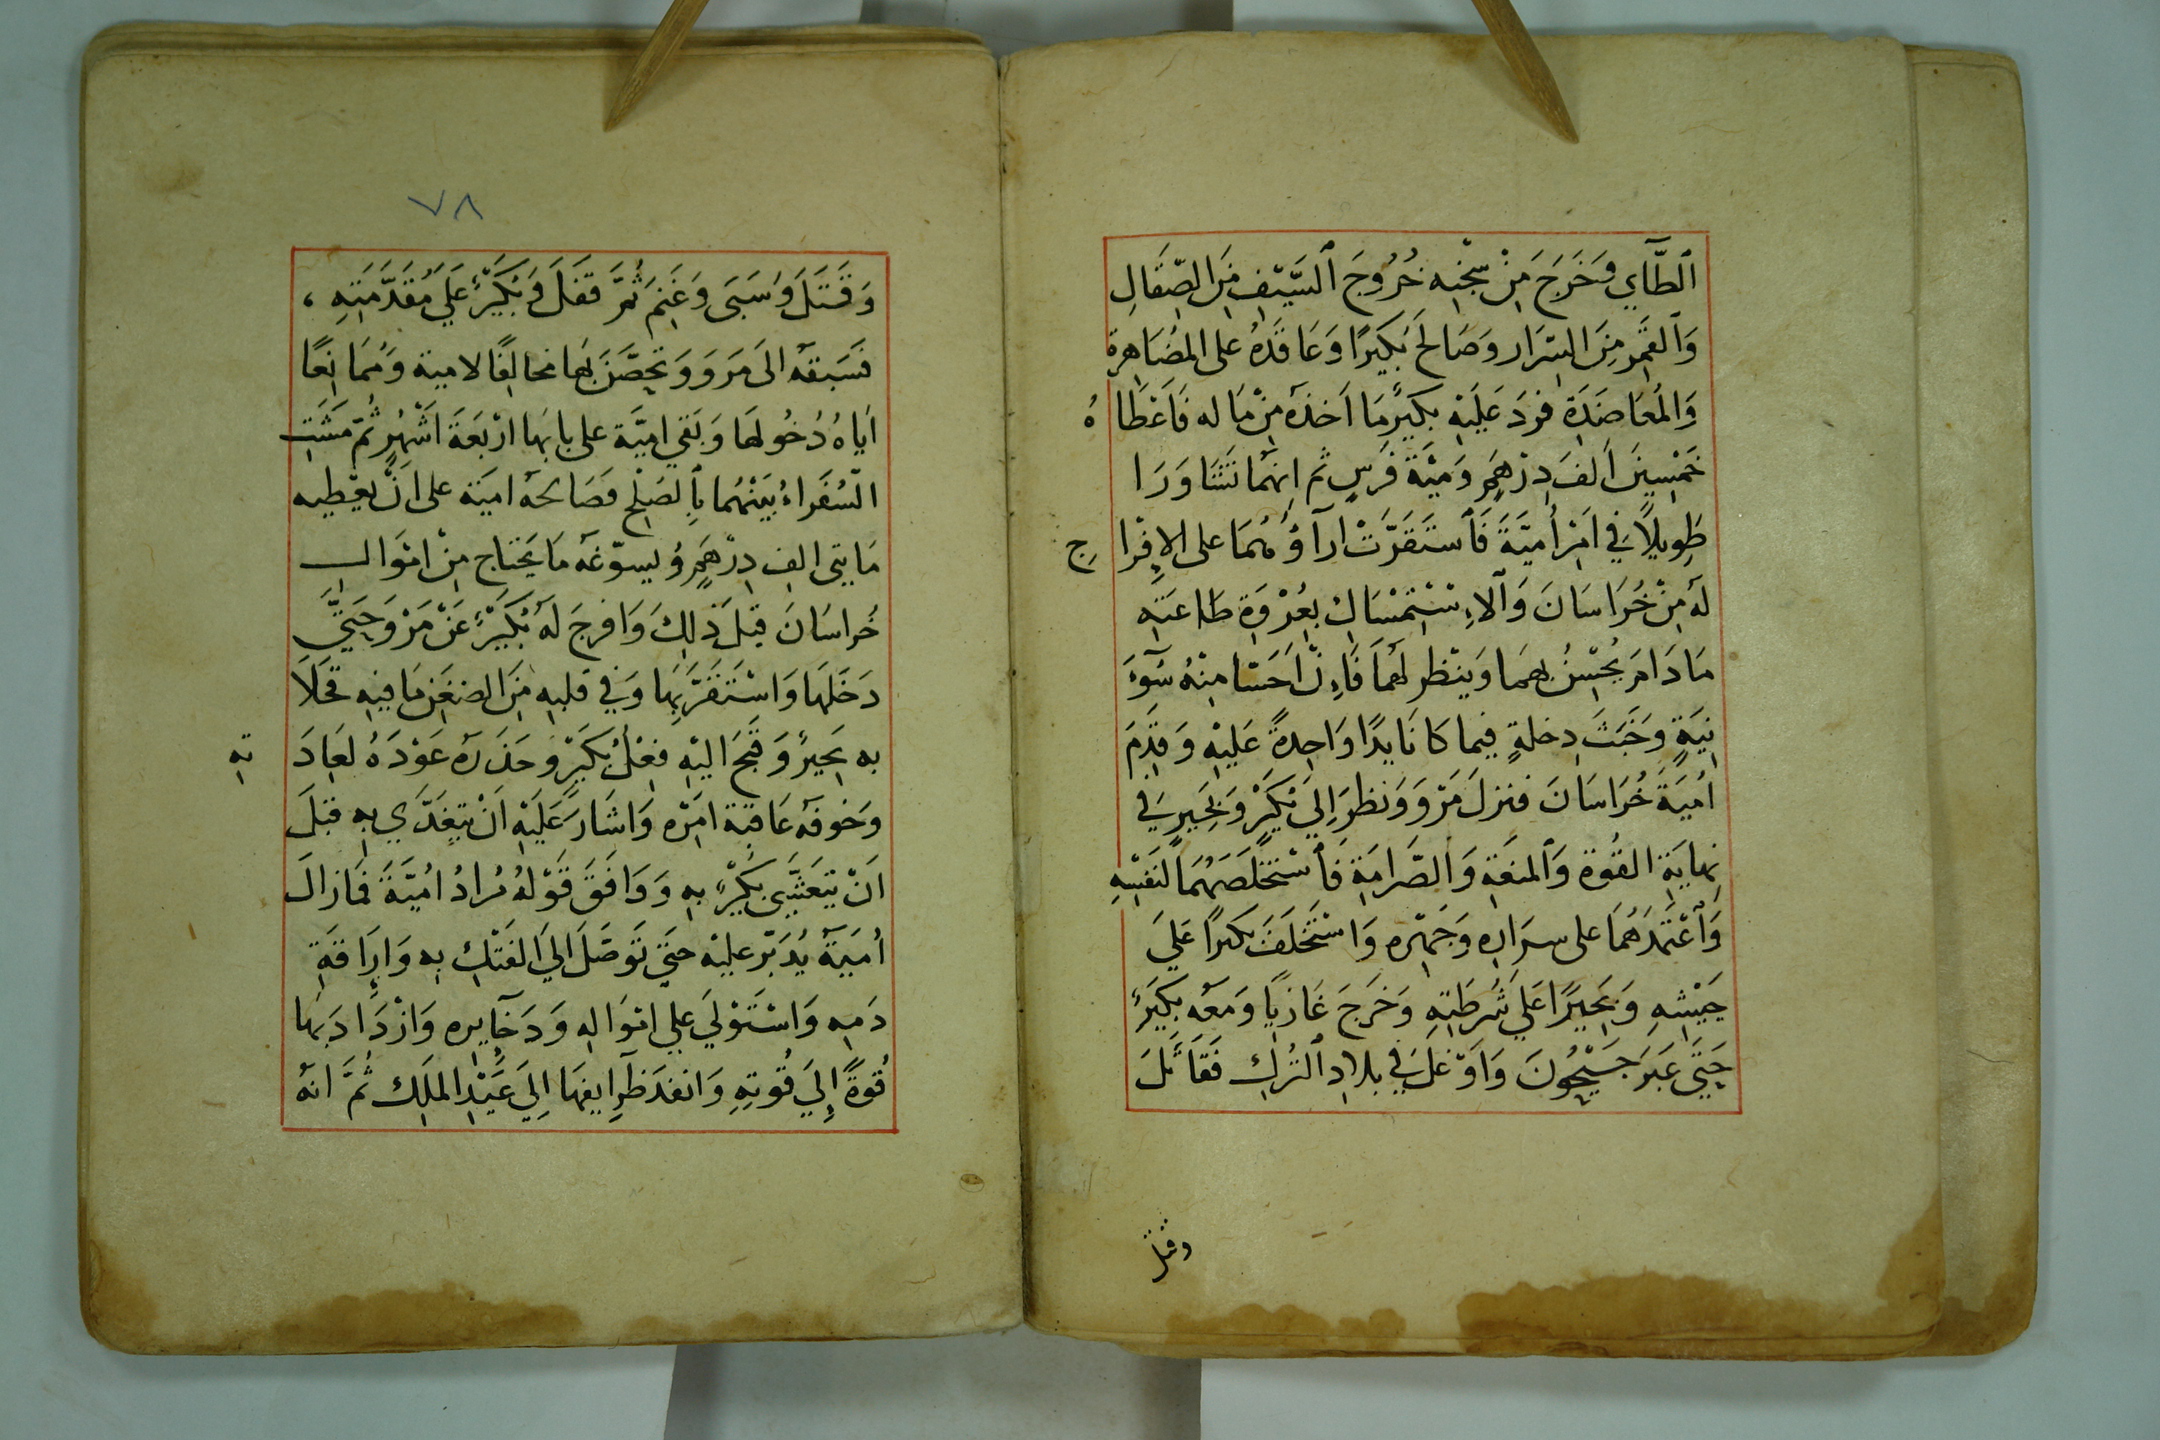 ٱلطَّآيِي وَخَرَجَ مِنْ سِجْنِه خُرُوجَ ٱلسَّيْفِ مِنَ الصِّقَالِ
وَٱلقَمَرِ مِنَ السِّرَار وَصَالَحَ بُكَيْرًا وَعَاقَدَهُ على المُصَاهِرة
وَالمُعَاضَدَةِ فردَ عَلَيْهِ بكَيْرٌ مَا اَخذَه مِنْ مَا له فَاَعْطَاهُ
خَمْسِينَ اَلفَ دِرْهَمٍ وَمِيْةَ فَرَسٍ ثم اِنهُمَا تَشَاوَرَا
طَوِيلاً في اَمْرِ أُميَّةَ فَٱستَقَرَّتْ ارآؤُهُمَا على الاِفْرَاجِ
لهُ مِنْ خُرَاسَانَ وَٱلاِسْتِمْسَاكِ بعُرْوَةِ طَاعَتِهِ
مَا دَامَ يُحْسِنُ بهمَا وَينْظر لَهُمَا فَاِنْ اَحَسّا مِنْهُ سُوۤءَ
نِيَةٍ وَخُبْثَ دِخلةٍ فيما كَانَا يدًا وَاحِدةً عَليْهِ وَقَدِمَ
اُميَةَ خُرَاسَانَ فنزلَ مَرْوَ وَنظرَ اِلي بُكَيْرٍ وَبَحِيرٍ في
نِهايَةِ القُوة وَٱلمنعَةِ وَٱلصَّرامَةِ فَٱسْتَخْلَصَهُمَا لنَفْسِهِ
وَٱعْتَمَدَهُمَا على سرَاره وَجَهْره وَاسْتَخلَفَ بكيرًا عَلي
جَيْشِهِ وَبَحِيرًا عَلي شُرطَتِهِ وَخَرَجَ غَازيًا وَمعَه بكيَرٌ
حَتَى عَبَرَ جَيْحُونَ وَاَوْغلَ في بلادِ ٱلتُركِ فَقَاتَلَ
وقتل
٧٨
وَقَتَلَ وَسَبَى وَغَنِمَ ثُمَّ قفَلَ وَبُكَيْرٌ عَلي مُقَدَّمَتِهِ ،
فَسَبقهُ الَى مَرَوَ وَتحصَّنَ بهَا مخالِفًا لامية وَمُمَانِعًا
اَياهُ دُخُولهَا وَبَقي اميَّة على بابهَا ارْبعَةَ اَشْهُرٍ ثُمّ مَشَتِ
السُفَراءُ بَيْنَهُمَا بِالصلْحِ فصَالحهُ اميَة على اَنْ يعْطيه
مَايتى الفِ دِرْهَمٍ وُيسوّغهُ مَا يَحْتاج مِنْ امْوَالِ
خُراسَانَ قبْلَ ذٰلِكَ وَافرجَ لهُ بُكَيْرٌ عَنْ مَرْوَ حَتَّى
دَخَلهَا وَاسْتَقَرَّ بِهَا وَفي قلبهِ مِنَ الضغْنِ مَا فيهِ فخَلَا
به بَحِيرٌ وَقبَّحَ اليْهِ فِعْلَ بُكَيْرٍ وَحَذرَهُ عَوْدَهُ لعَادَتِهِ
وَخوفهُ عَاقبَة امْرِه وَاشَارَ عَلَيْهِ اَنْ يتغَدَّى بهِ قبْلَ
اَنْ يَتعَشَّى بُكَيْرٌ بهِ وَوَافَقَ قَوْلُهُ مُرادُ اُميَّةَ فَمَا زالَ
اُمَيَّةُ يُدَبّر عليْهِ حتَي تَوَصَّلَ اليَ الفَتْكِ بهِ وَاِرَاقةِ
دَمهِ وَاسْتَوْليَ علي امْوَالهِ وَدَخَايِره وَازْدَادَ بهَا
قُوةً اِلي قُوتهِ وَانفذ طَرآيفهَا اِلي عَبْدِ الملِك ثُمَّ انهُ